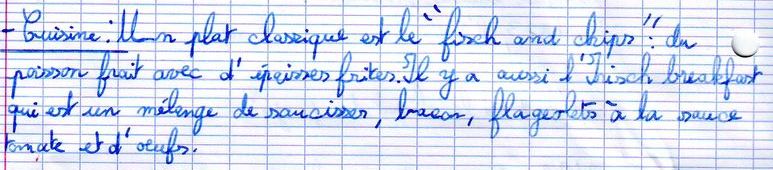 - Cuisine : Un plat classique est le "fisch and chips": du
poisson frait avec d'épeisses frites. Il y a aussi l'Irisch breakfast
qui est un mélange de saucisses, bacon, flageolets à la sauce
tomate et d'oeufs.